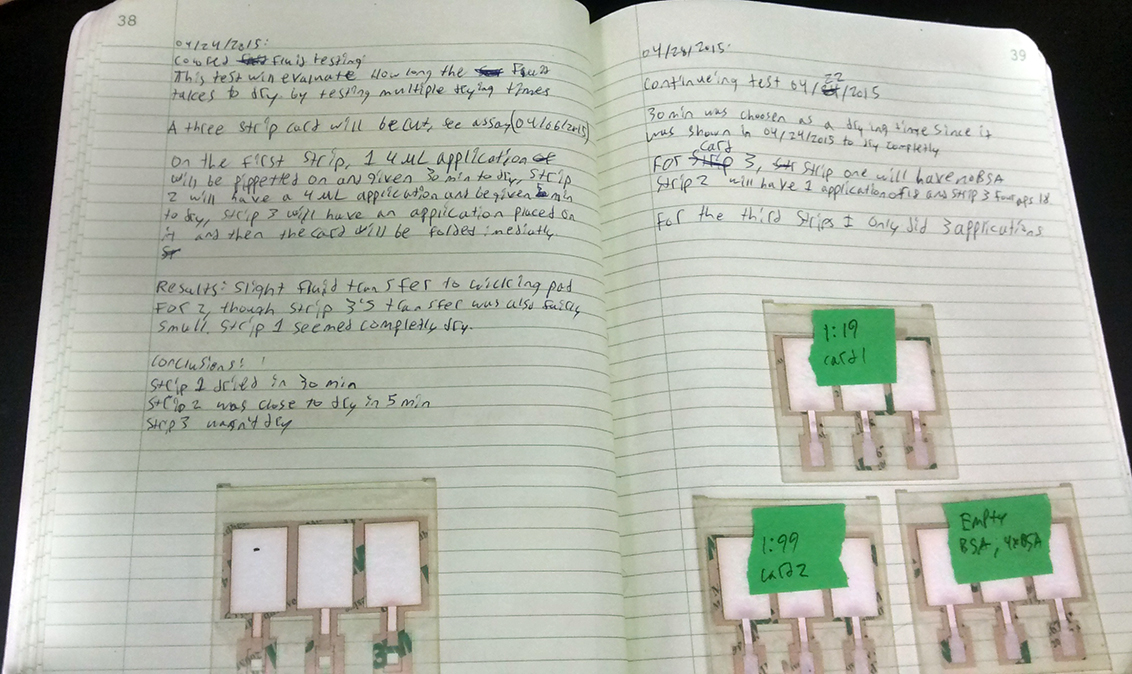 38
04/24/2015:
Covered Fluid testing:
This test will evaluate How long the Fluid
takes to dry by testing multiple drying times
A three strip card will be cut, see assay (04/06/2015)
On the first strip, 1 4 uL application
will be pippetted on and given 30 min to dry, strip
2 will have a 4 uL application and be given 5 min
to dry, strip 3 will have an application placed on
it and then the card will be folded imediatly
Results: Slight fluid transfer to wicking pad
For 2, though strip 3's transfer was also fairly
small. Strip 1 seemed completly dry.
Conclusions:
Strip 1 dried in 30 min
Strip 2 was close to dry in 5 min
Strip 3 wasn't dry
39
04/28/2015:
Continueing test 04/22/2015
30 min was choosen as a drying time since it
was shown in 04/24/2015 to dry completly
For card 3, strip one will have no BSA
Strip 2 will have 1 application of it and strip 3
For the third strips I only did 3 applications
1:19
card 1
1:99
card 2
Empty
BSA, 4xBSA